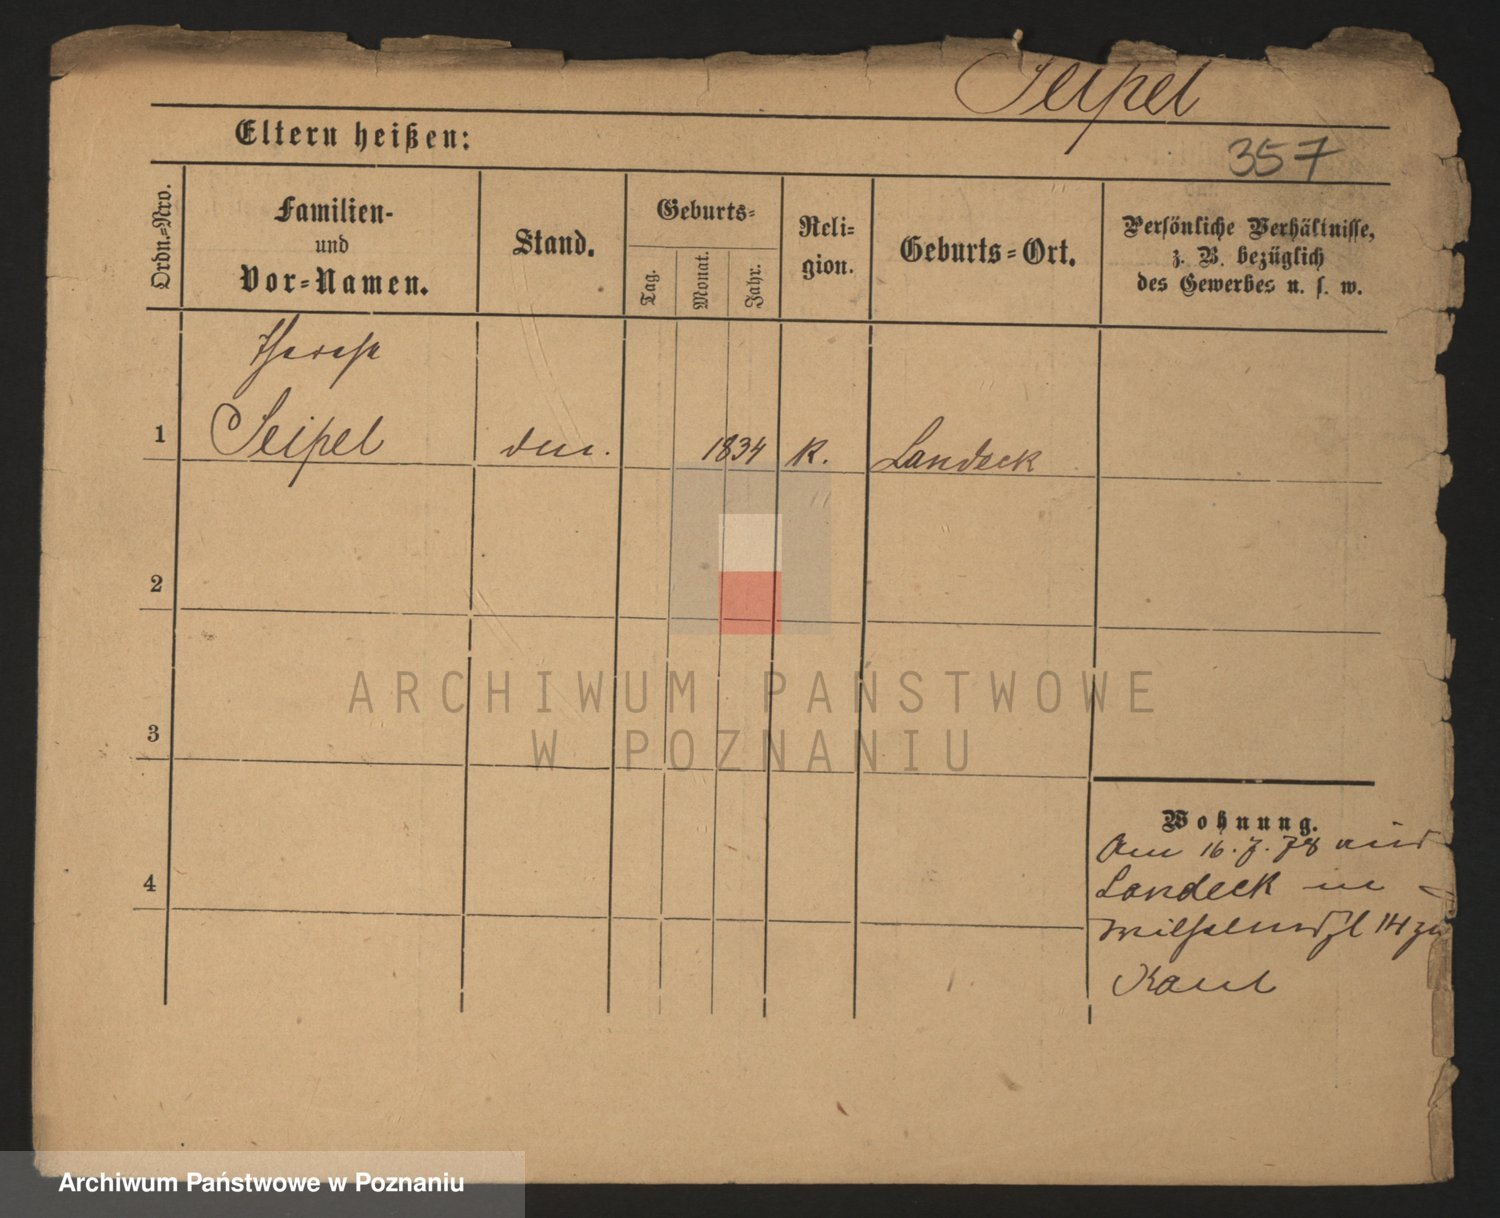 Seipel
Eltern heißen:
357
Ordn.=Nro.
Familien-
und
Vor=Namen.
Stand.
Geburts=
Tag.
Monat.
Jahr.
Reli=
gion.
Geburts=Ort.
Persönliche Verhältnisse,
z. B. bezüglich
des Gewerbes u. s. w.
Therese
1 Seipel 1834 K. Landeck
2
3
4
Wohnung.
Am 16. 7. 78 aus
Landeck in
14 zu
ARCHIWUM PAŃSTWOWE
W POZNANIU
Archiwum Państwowe w Poznaniu